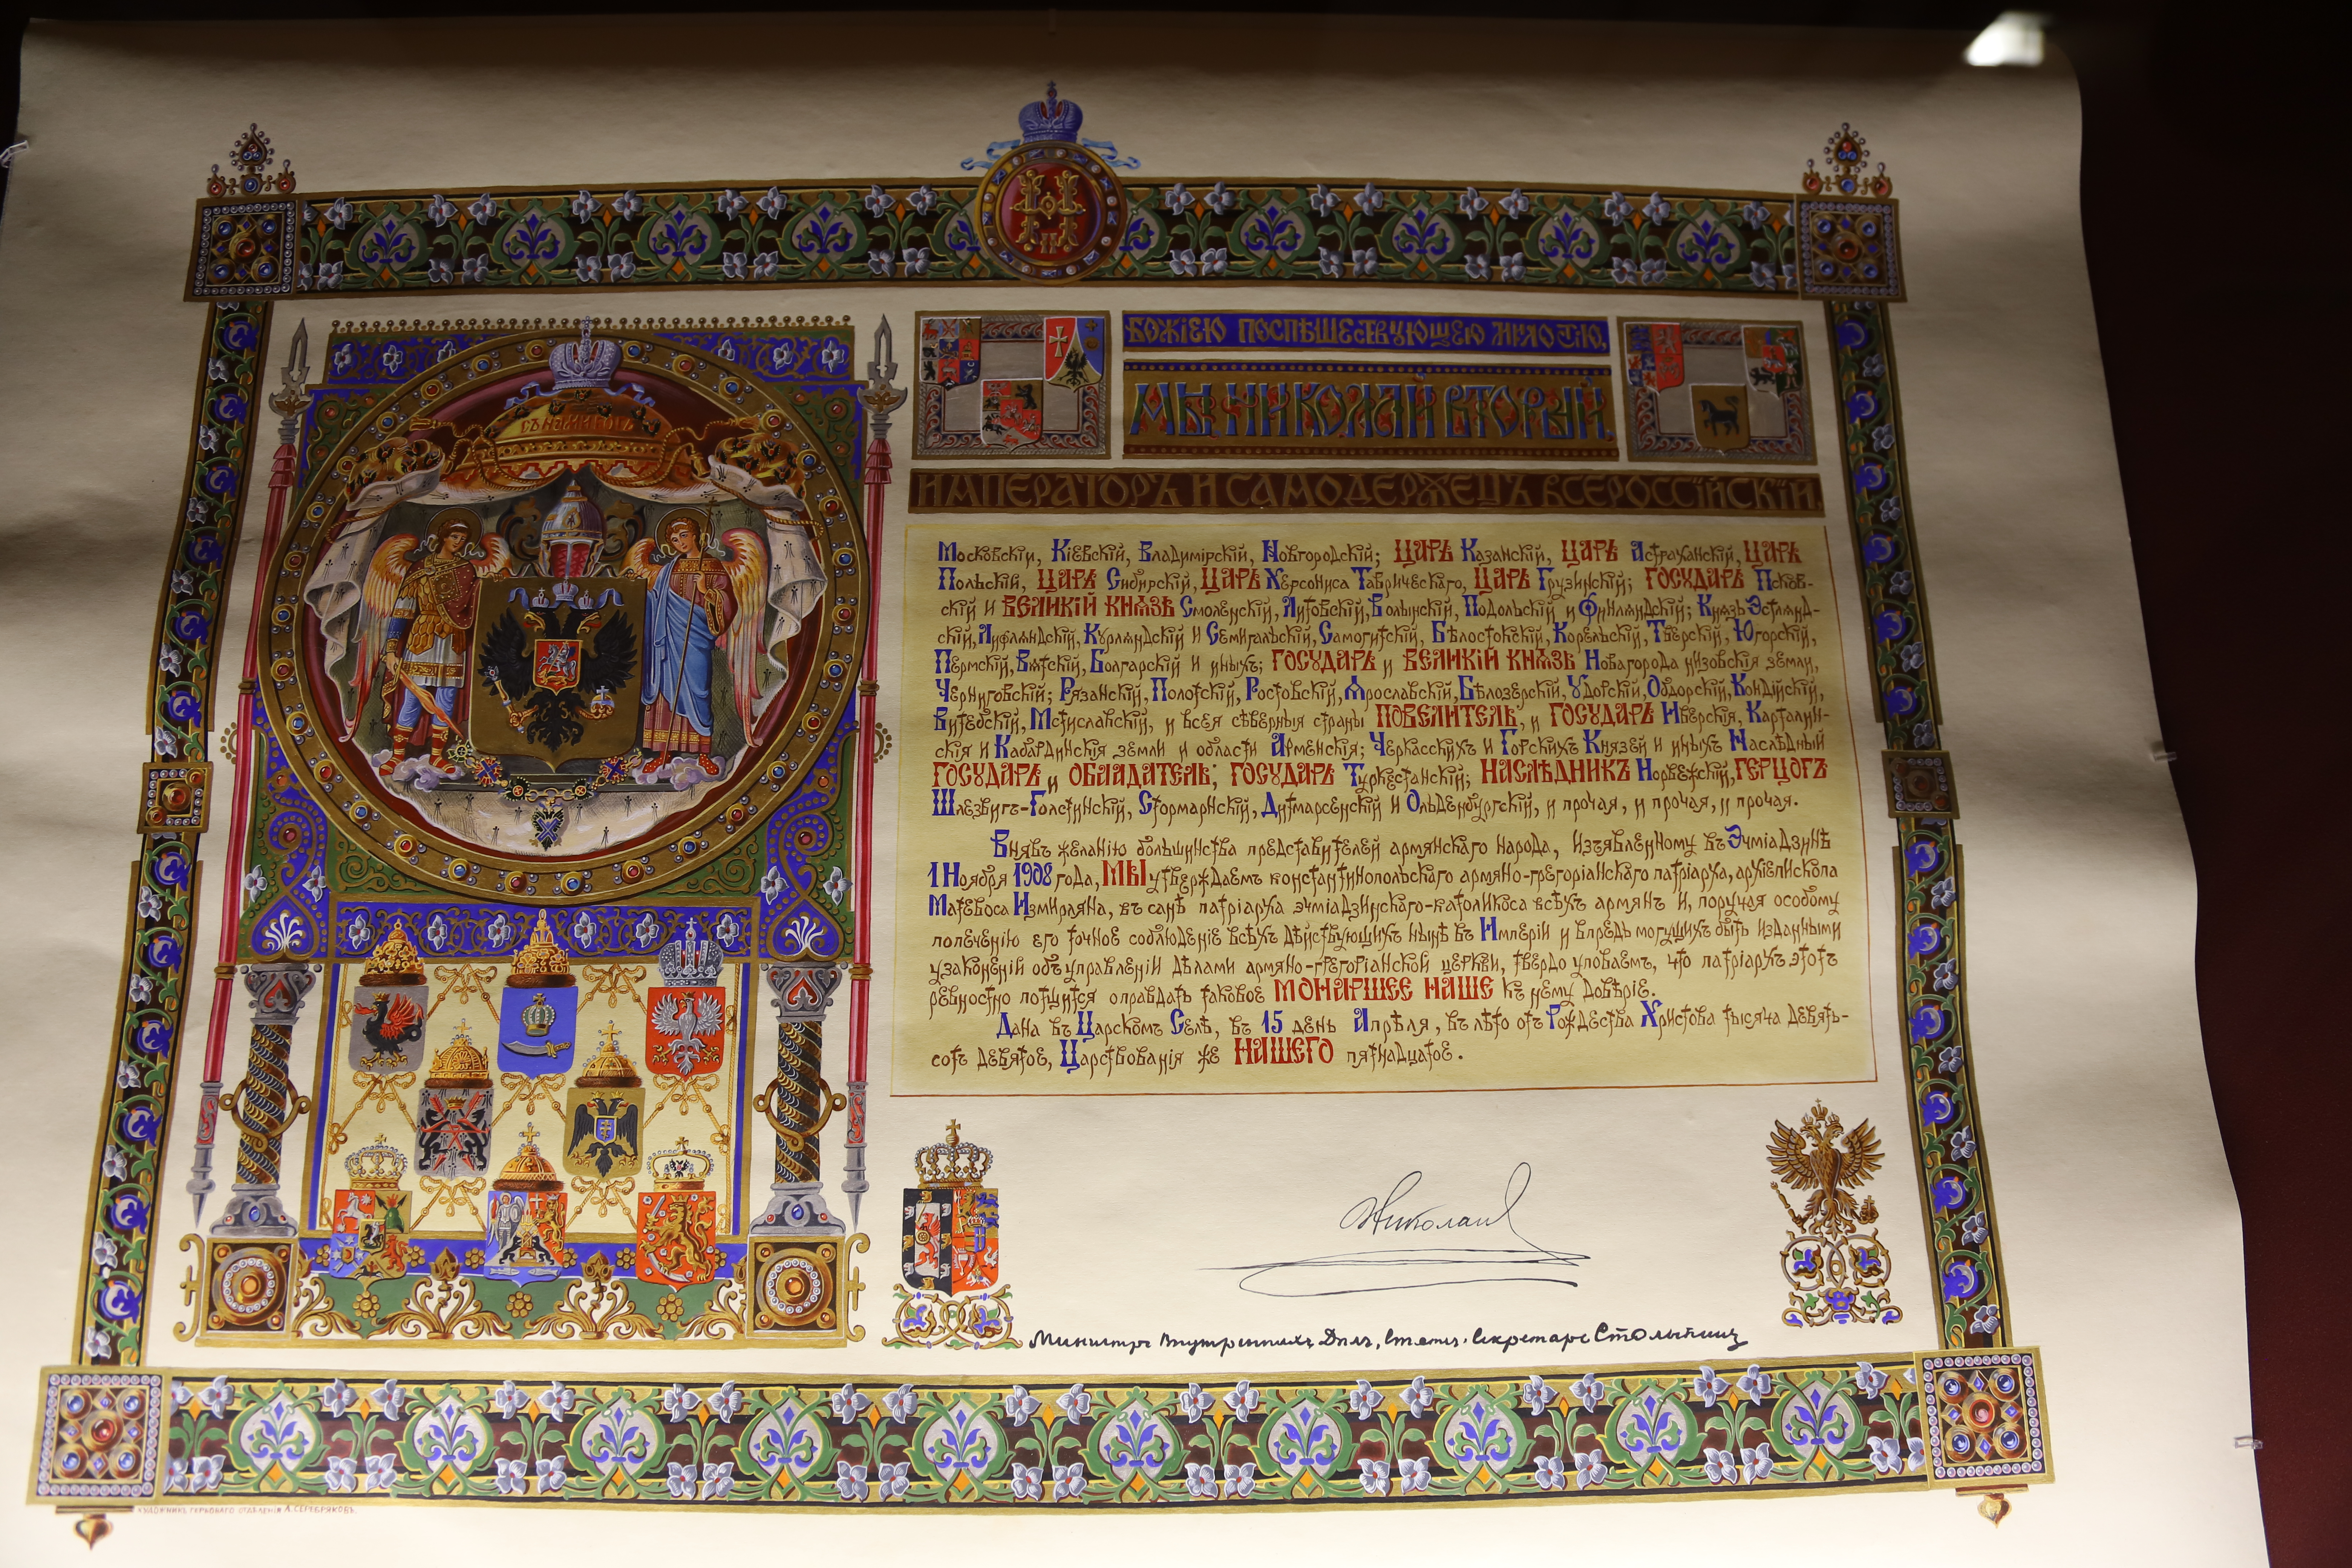 Н
II
СЪ НАМИ БОГЪ
БОЖІЕЮ ПОСПѢШЕСТВУЮЩЕЮ МИЛОСТІЮ,
МЫ НИКОЛАЙ ВТОРЫЙ,
ИМПЕРАТОРЪ И САМОДЕРЖЕЦЪ ВСЕРОССІЙСКІЙ,
Московскій, Кіевскій, Владимірскій, Новгородскій; ЦАРЬ Казанскій, ЦАРЬ Астраханскій, ЦАРЬ
Польскій, ЦАРЬ Сибирскій, ЦАРЬ Херсониса Таврическаго, ЦАРЬ Грузинскій; ГОСУДАРЬ Псков-
скій и ВЕЛИКІЙ КНЯЗЬ Смоленскій, Литовскій, Волынскій, Подольскій и Финляндскій; Князь Эстлянд-
скій, Лифляндскій, Курляндскій и Семигальскій, Самогитскій, Бѣлостокскій, Корельскій, Тверскій, Югорскій,
Пермскій, Вятскій, Болгарскій и иныхъ; ГОСУДАРЬ и ВЕЛИКІЙ КНЯЗЬ Новагорода низовскія земли,
Черниговскій; Рязанскій, Полотскій, Ростовскій, Ярославскій, Бѣлозерскій, Удорскій, Обдорскій, Кондійскій,
Витебскій, Мстиславскій, и всея сѣверныя страны ПОВЕЛИТЕЛЬ, и ГОСУДАРЬ Иверскія, Карталин-
скія и Кабардинскія земли и области Арменскія; Черкасскихъ и Горскихъ Князей и иныхъ Наслѣдный
ГОСУДАРЬ и ОБЛАДАТЕЛЬ; ГОСУДАРЬ Туркестанскій; НАСЛѢДНИКЪ Норвежскій, ГЕРЦОГЪ
Шлезвигъ-Голстинскій, Стормарнскій, Дитмарсенскій и Ольденбургскій, и прочая, и прочая, и прочая.
Внявъ желанію большинства представителей армянскаго народа, изъявленному въ Эчміадзинѣ
1 Ноября 1908 года, МЫ утверждаемъ константинопольскаго армяно-грегоріанскаго патріарха, архіепископа
Матевоса Измирляна, въ санѣ патріарха эчміадзинскаго-католикоса всѣхъ армянъ и, поручая особому
попеченію его точное соблюденіе всѣхъ дѣйствующихъ нынѣ въ Имперіи и впредь могущихъ быть изданными
узаконеній объ управленіи дѣлами армяно-грегоріанской церкви, твердо уповаемъ, что патріархъ этотъ
ревностно потщится оправдать таковое МОНАРШЕЕ НАШЕ къ нему довѣріе.
Дана въ Царскомъ Селѣ, въ 15 день Апрѣля, въ лѣто отъ Рождества Христова тысяча девять-
сотъ девятое, Царствованія же НАШЕГО пятнадцатое.
Николай
Министръ Внутреннихъ Дѣлъ, Статс-Секретарь Столыпинъ
ХУДОЖНИКЪ ГЕРБОВАГО ОТДѢЛЕНІЯ А. СЕРЕБРЯКОВЪ.